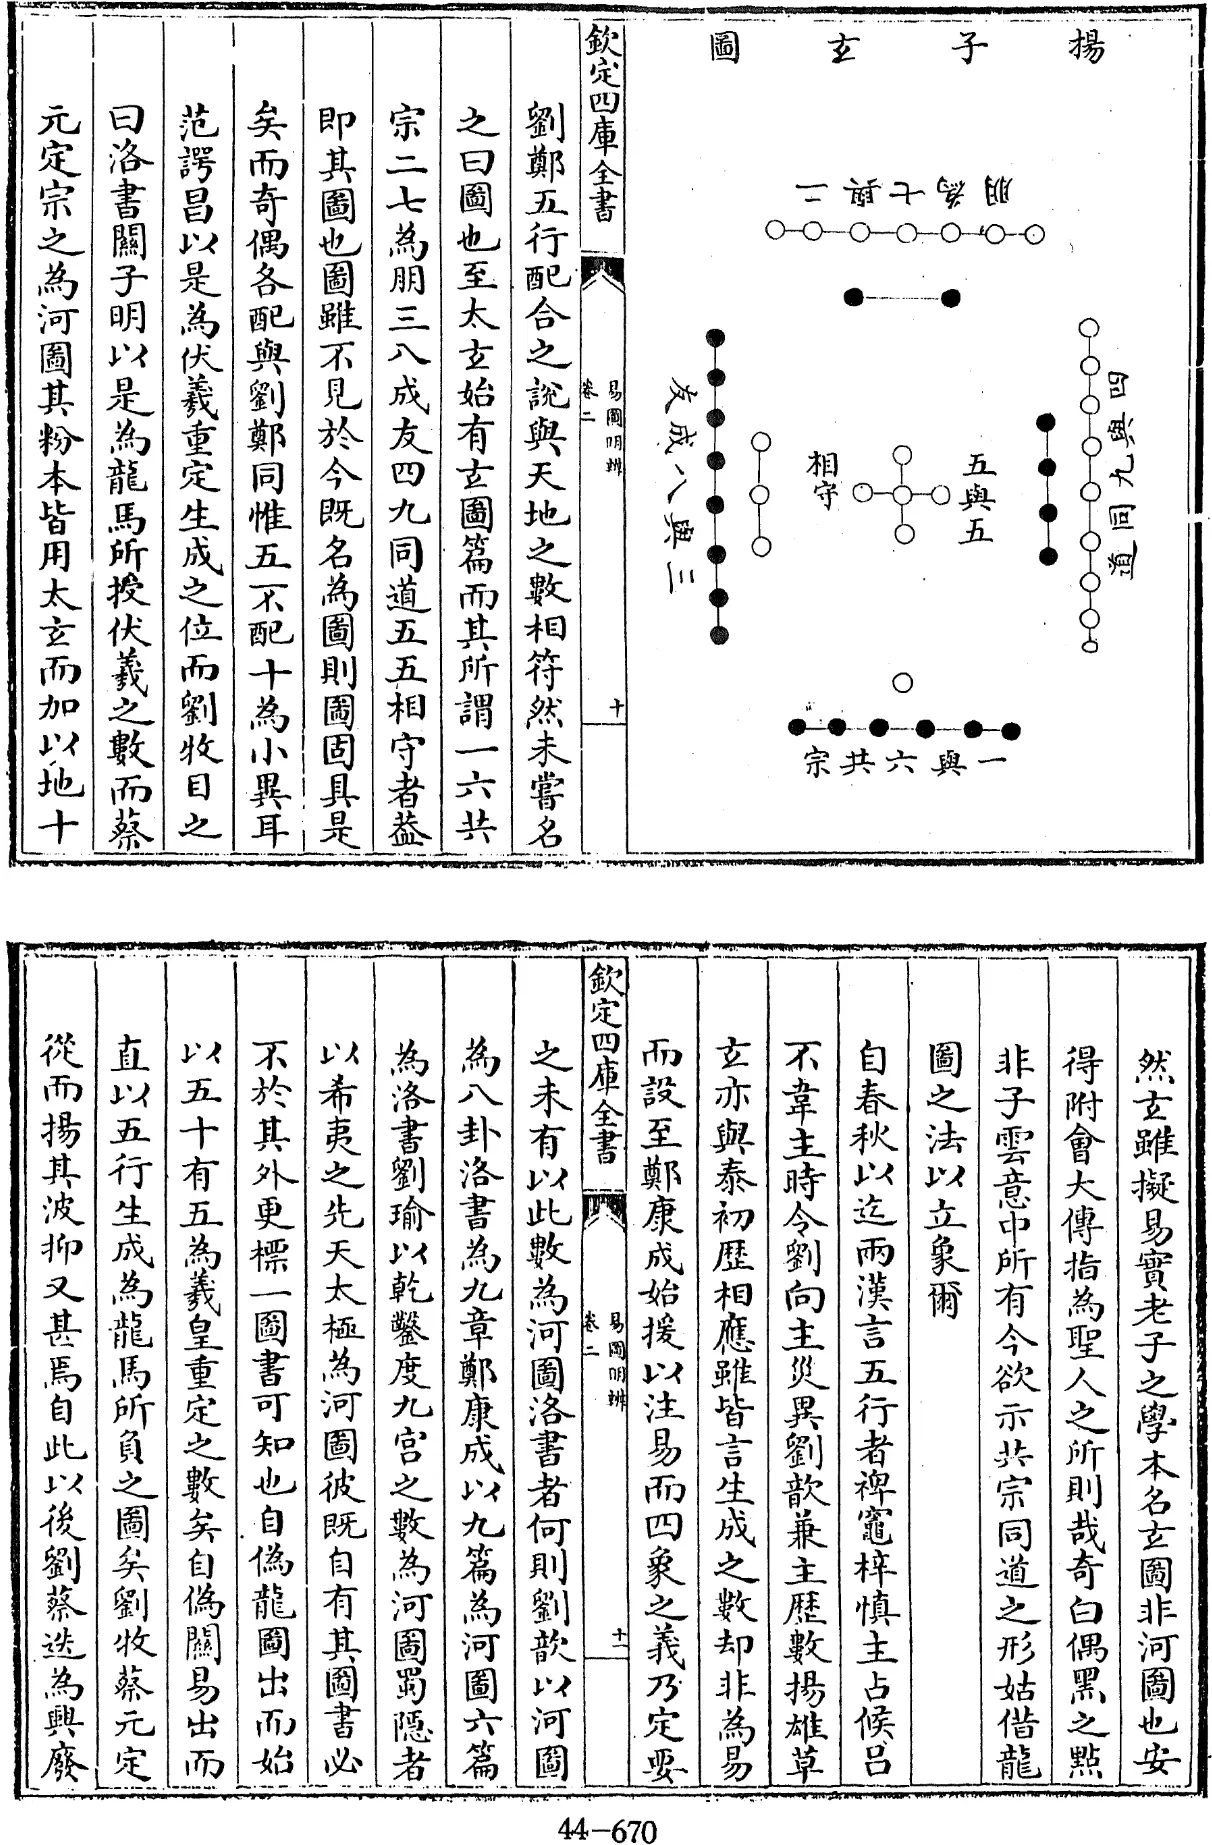 揚子玄圖
二與七為朋
四與九同道
五與五
相守
三與八成友
一與六共宗
欽定四庫全書
易圖明辨
卷二
十
劉鄭五行配合之說與天地之數相符然未嘗名
之曰圖也至太玄始有玄圖篇而其所謂一六共
宗二七為朋三八成友四九同道五五相守者蓋
即其圖也圖雖不見於今既名為圖則圖固具是
矣而奇偶各配與劉鄭同惟五不配十為小異耳
范諤昌以是為伏羲重定生成之位而劉牧目之
曰洛書關子明以是為龍馬所授伏羲之數而蔡
元定宗之為河圖其粉本皆用太玄而加以地十
然玄雖擬易實老子之學本名玄圖非河圖也安
得附會大傳指為聖人之所則哉奇白偶黑之點
非子雲意中所有今欲示共宗同道之形姑借龍
圖之法以立象爾
自春秋以迄兩漢言五行者裨竈梓慎主占候呂
不韋主時令劉向主災異劉歆兼主歷數揚雄草
玄亦與泰初歷相應雖皆言生成之數却非為易
而設至鄭康成始援以注易而四象之義乃定要
欽定四庫全書
易圖明辨
卷二
十一
之未有以此數為河圖洛書者何則劉歆以河圖
為八卦洛書為九章鄭康成以九篇為河圖六篇
為洛書劉瑜以乾鑿度九宮之數為河圖蜀隱者
以希夷之先天太極為河圖彼既自有其圖書必
不於其外更標一圖書可知也自偽龍圖出而始
以五十有五為羲皇重定之數矣自偽關易出而
直以五行生成為龍馬所負之圖矣劉牧蔡元定
從而揚其波抑又甚焉自此以後劉蔡迭為興廢
44-670